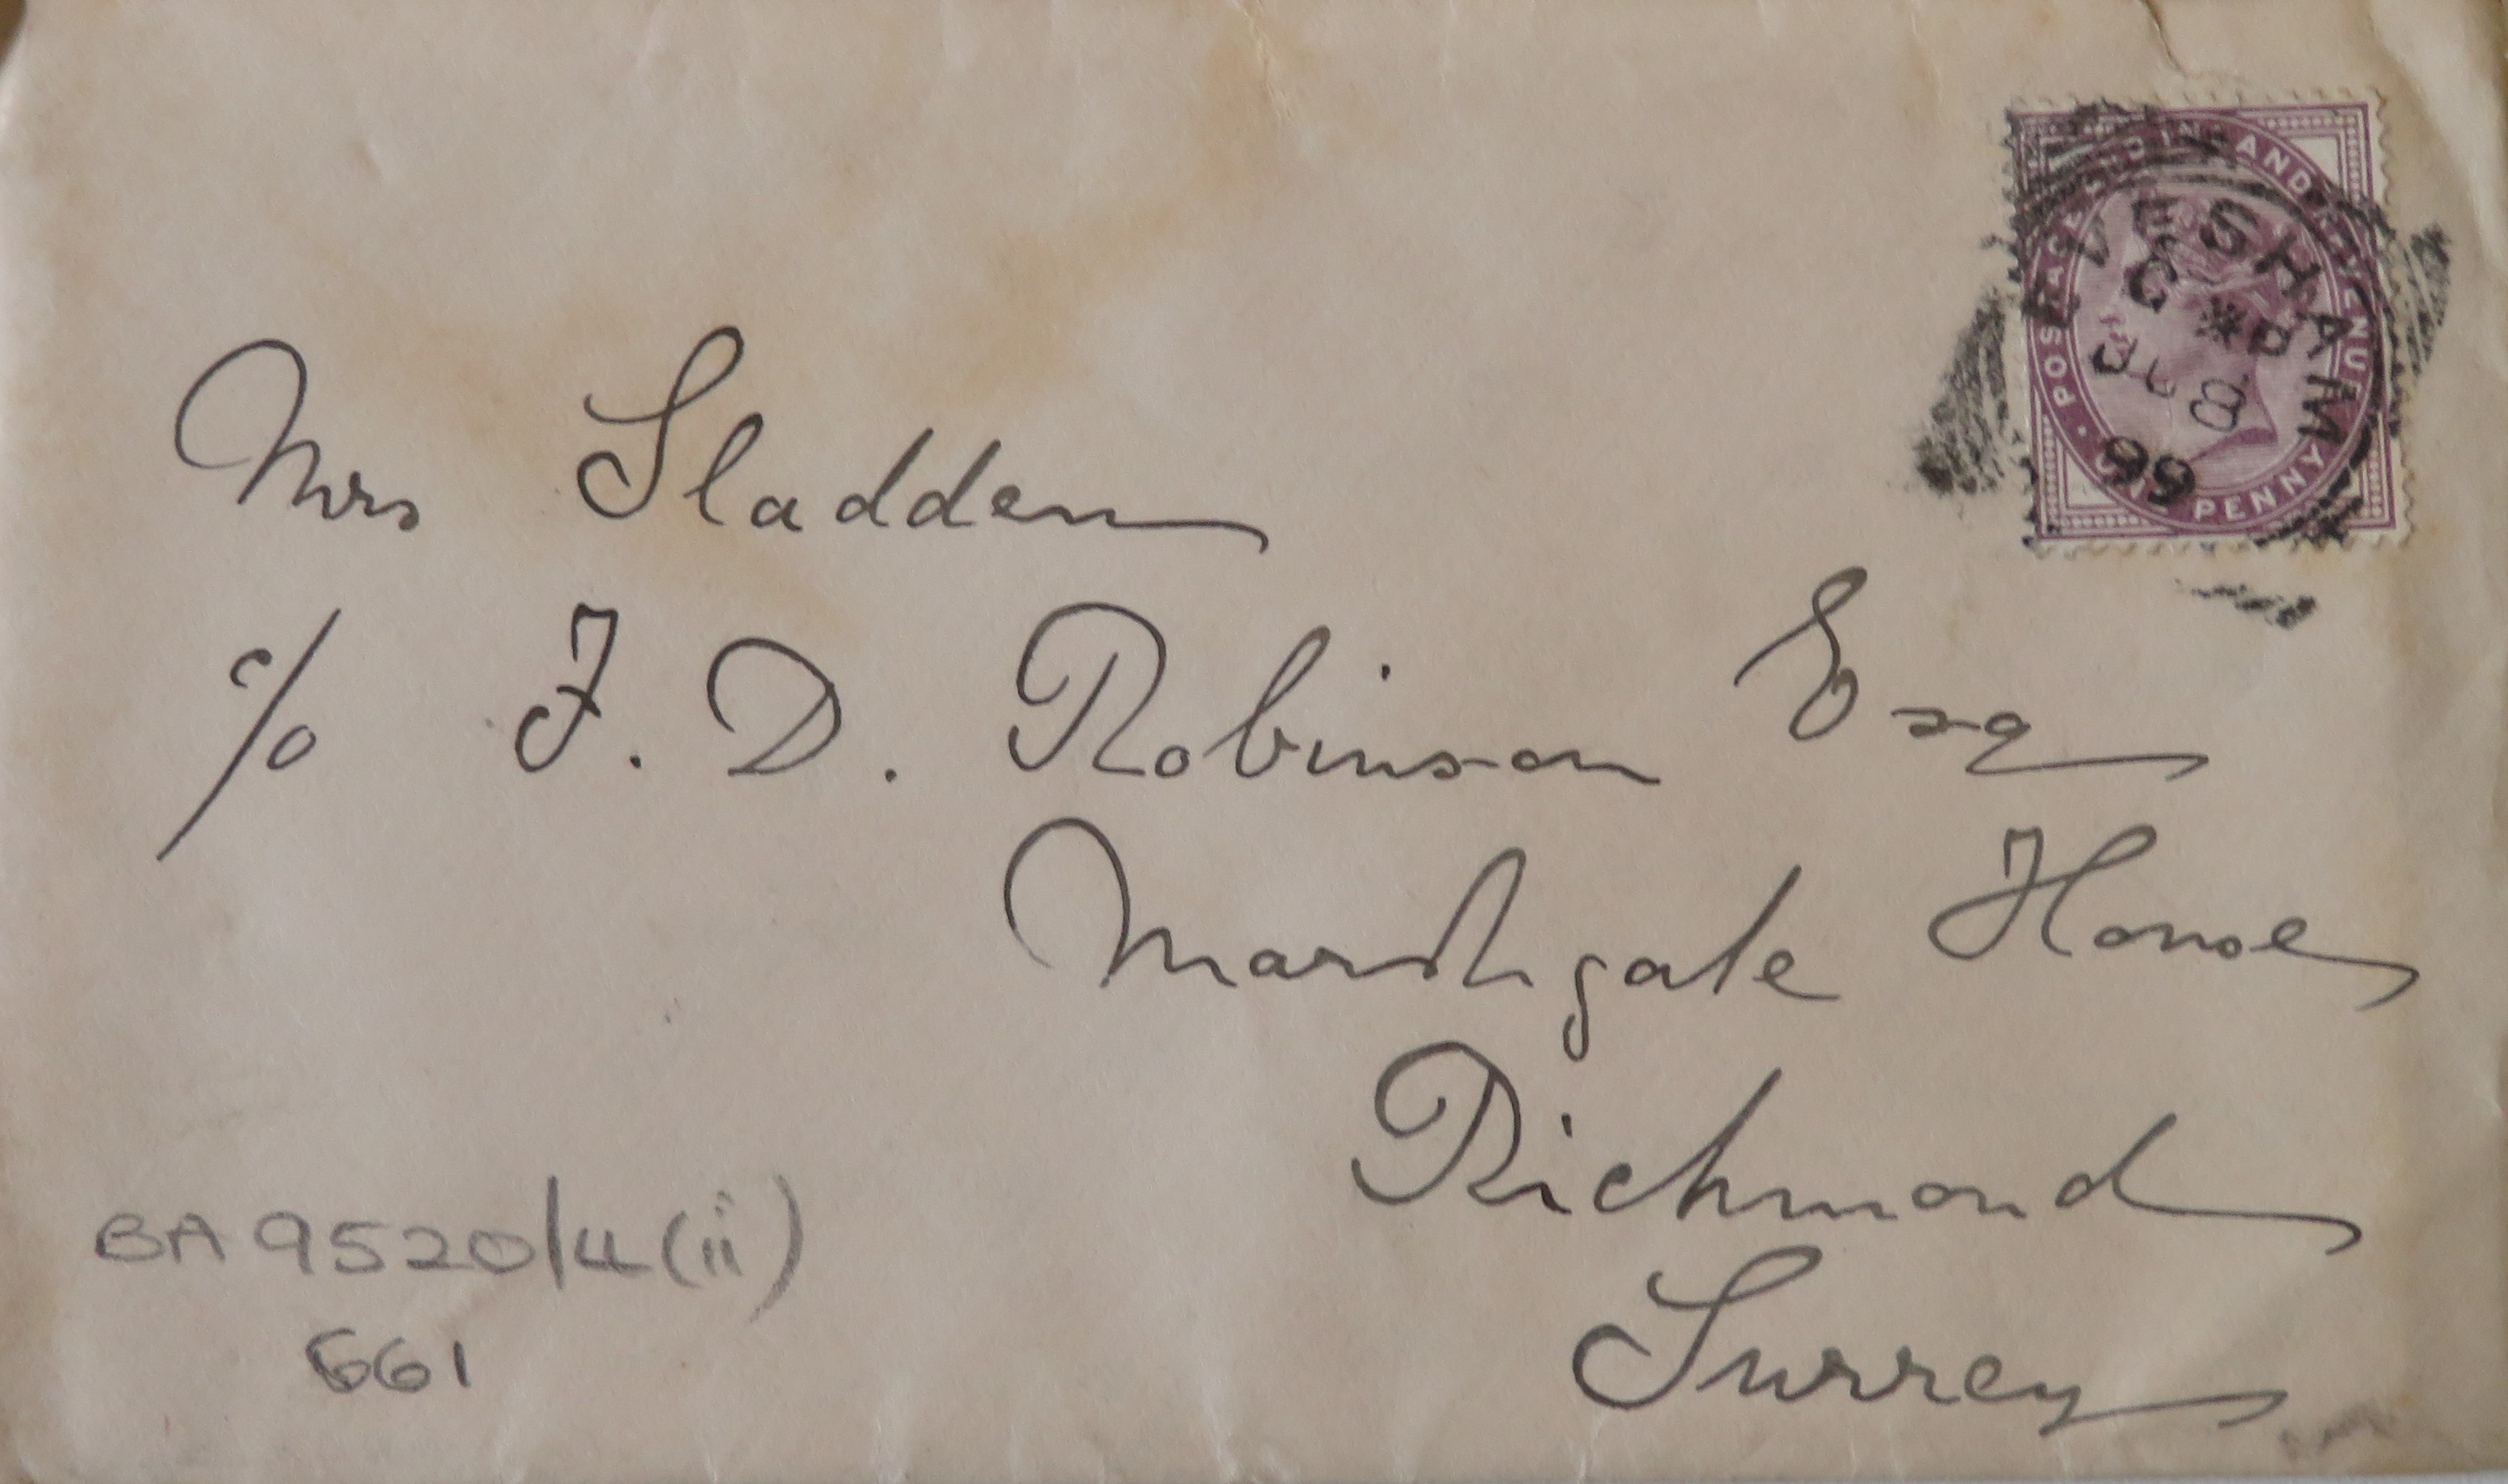 POSTAGE AND INLAND REVENUE
ONE PENNY
EVESHAM
JU 8
99
Mrs Sladden
c/o J. D. Robinson Esq
Marshgate House
Richmond
Surrey
BA 9520/4(ii)
661